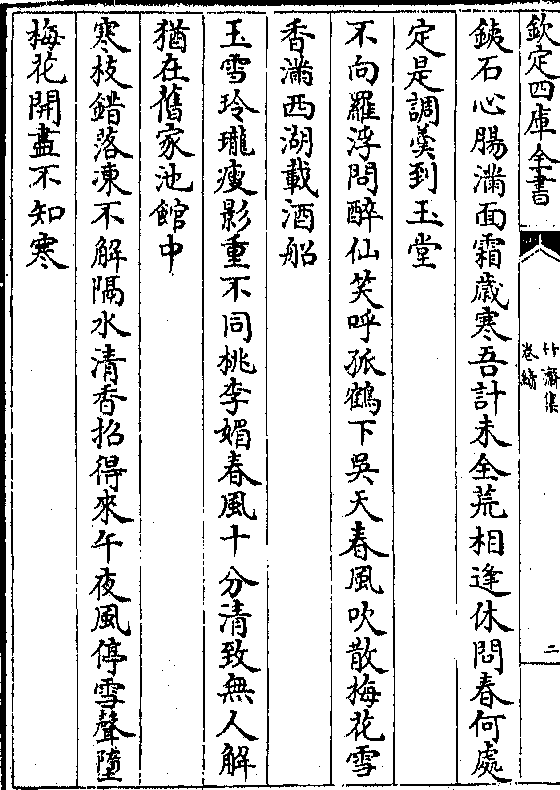 欽定四庫全書
竹齋集
卷續
二
鐡石心腸滿面霜歲寒吾計未全荒相逢休問春何處
定是調羹到玉堂
不向羅浮問醉仙笑呼孤鶴下吳天春風吹散梅花雪
香滿西湖載酒船
玉雪玲瓏瘦影重不同桃李媚春風十分清致無人解
猶在舊家池館中
寒枝錯落凍不解隔水清香招得來午夜風停雪聲墮
梅花開盡不知寒